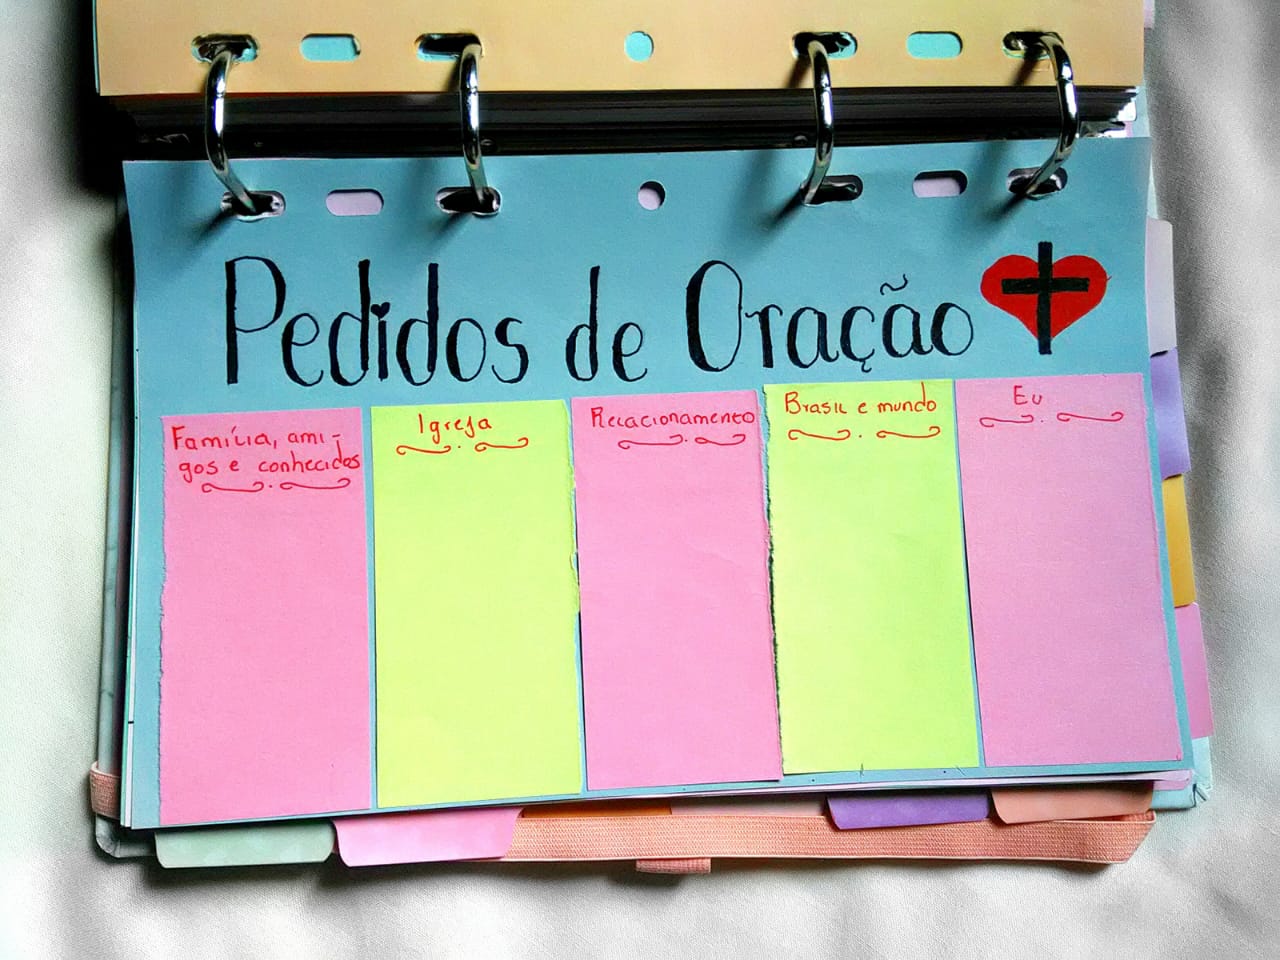 Pedidos de Oração
Família, ami-
gos e conhecidos
Igreja
Relacionamento
Brasil e mundo
Eu